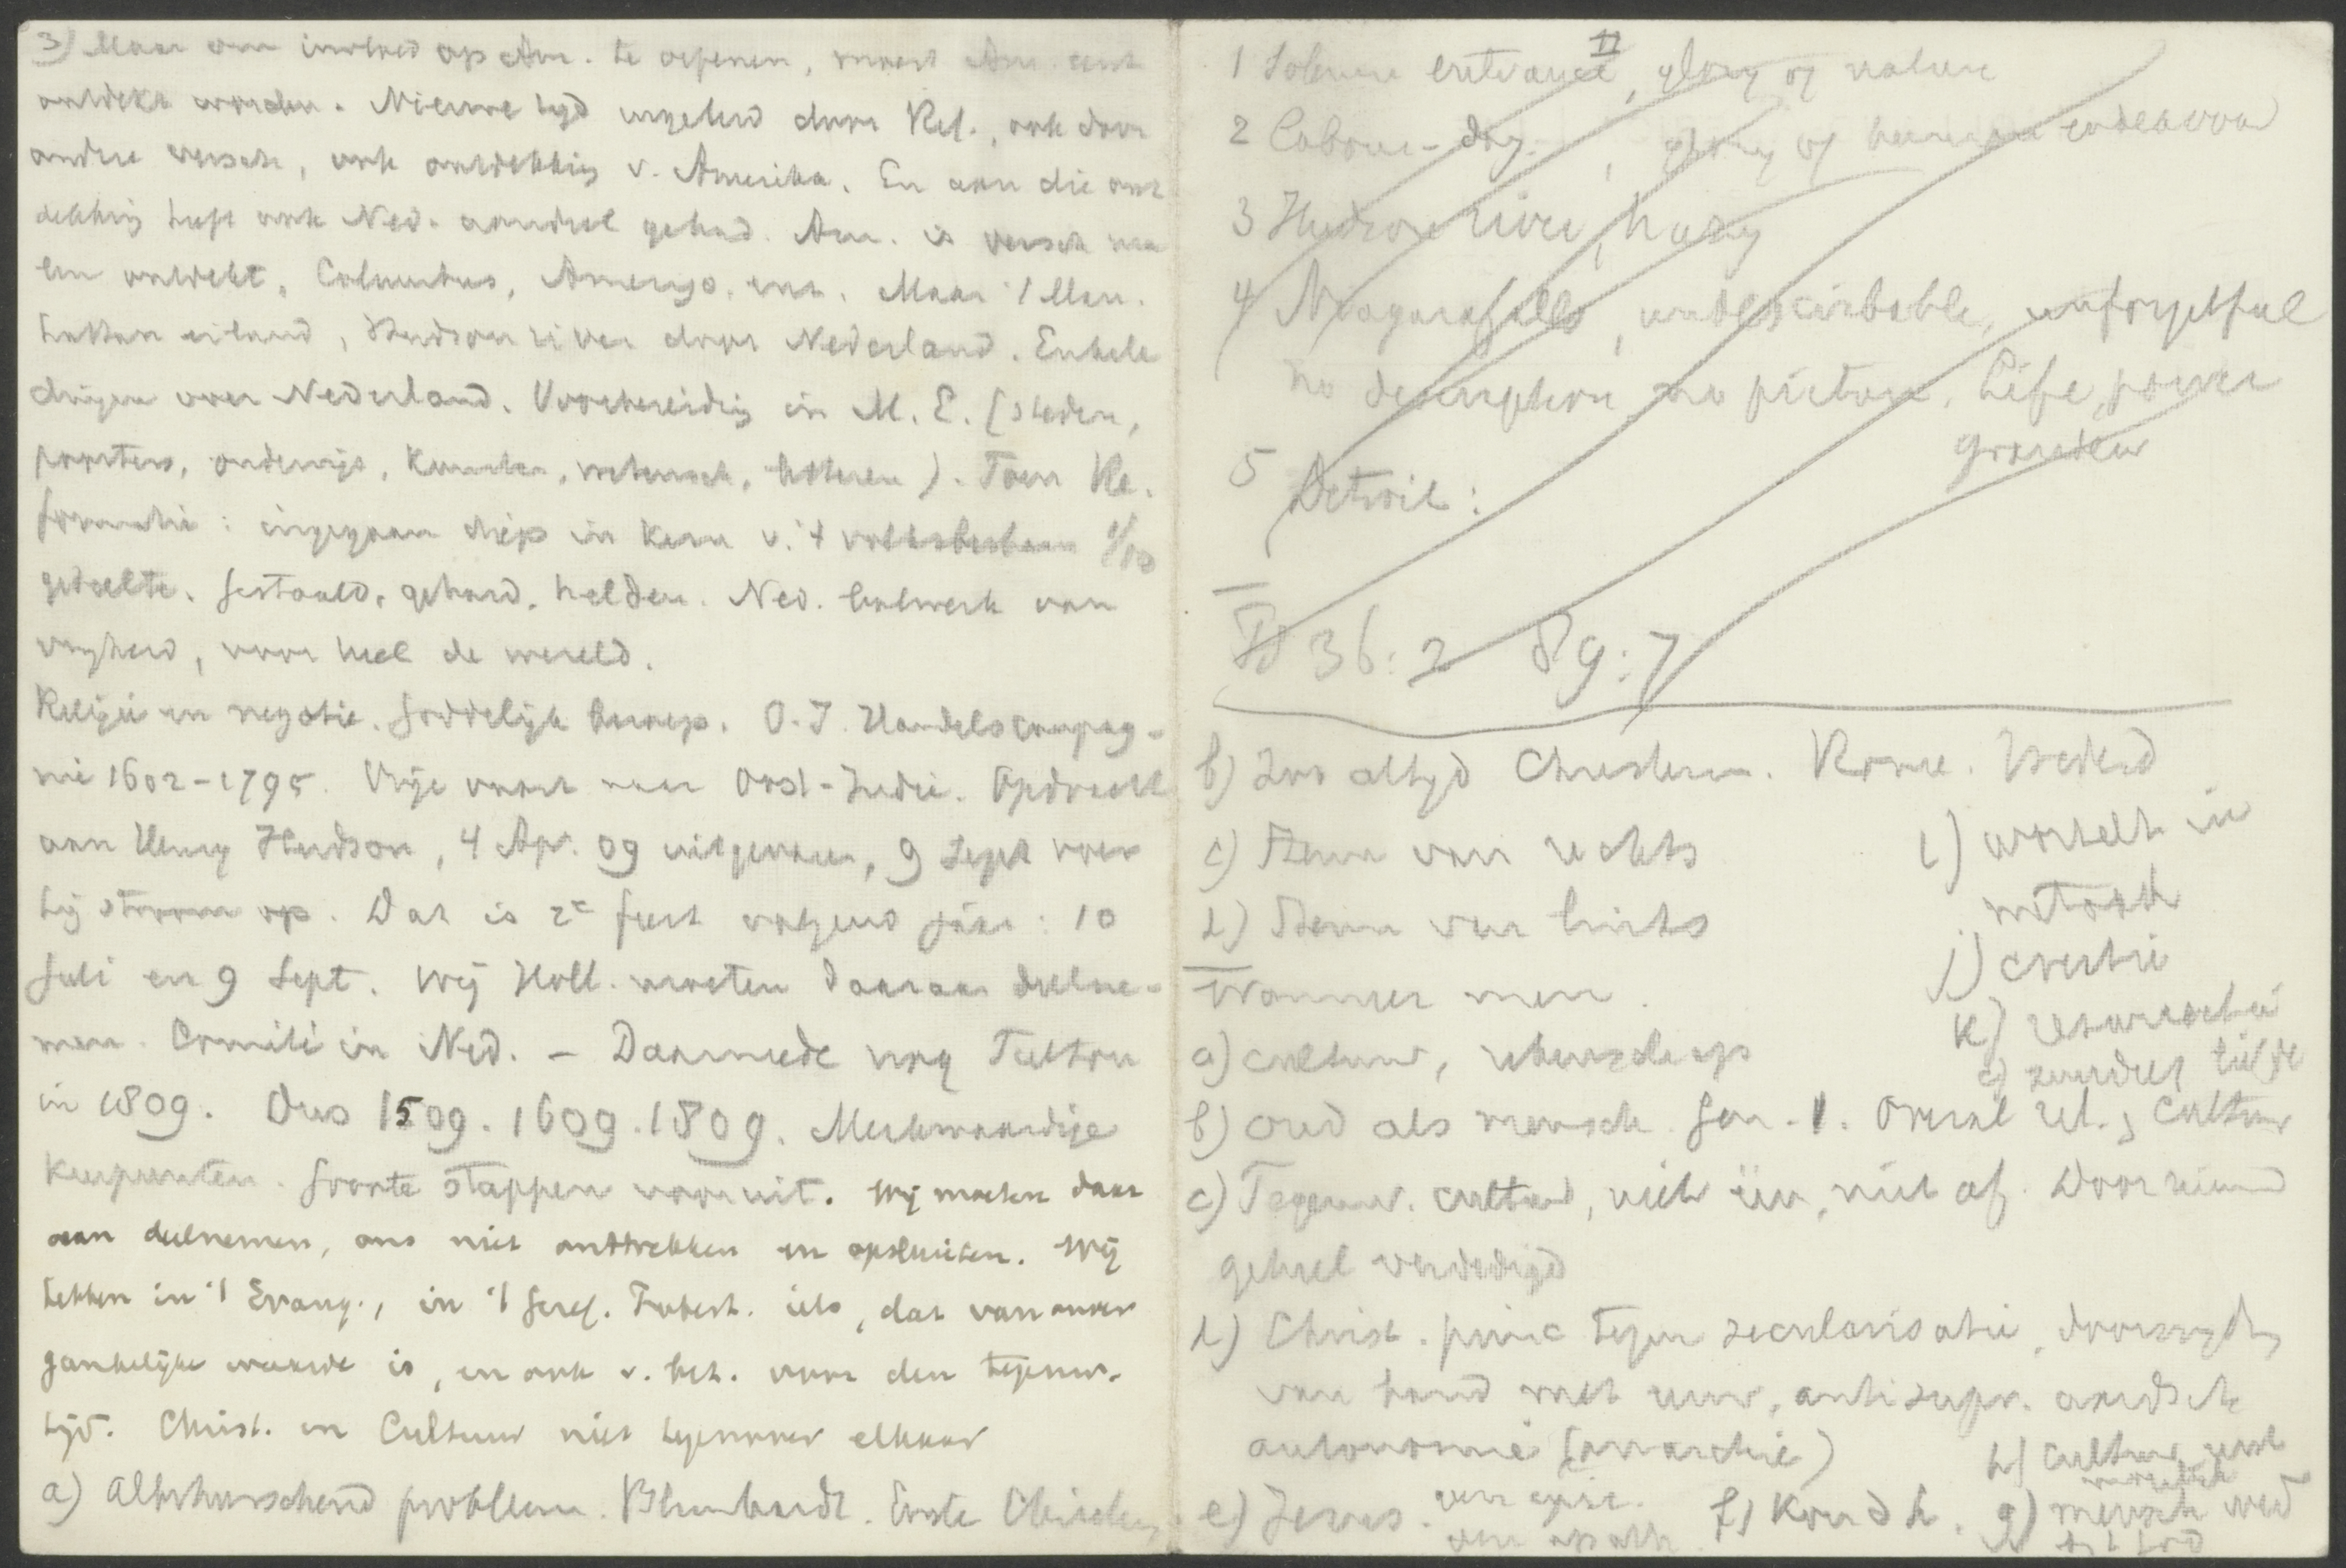 3) Maar om invloed op Am. te oefenen, moest Am. eerst
ontdekt worden. Nieuwe tijd ingeluid door Ref., ook door
andere versch., ook ontdekking v. Amerika. En aan die ont
dekking heeft ook Ned. aandeel gehad. Am. is versch. ma
len ontdekt, Columbus, Amerigo, enz. Maar 't Man.
hattan eiland, Hudson river door Nederland. Enkele
dingen over Nederland. Voorbereiding in M. E. (steden,
poorters, onderwijs, kunsten, wetensch., letteren). Toen Re.
formatie: ingegaan diep in kern v. 't volksbestaan 1/10
gedeelte. Gestaald, gehard, helden. Ned. bolwerk van
vrijheid, voor heel de wereld.
Religie en negotie. Goddelijk beroep. O.I. Handelscompag-
nie 1602-1795. Vrije vaart naar Oost-Indië. Opdracht
aan Henry Hudson, 4 Apr. 09 uitgevaren, 9 Sept voer
hij stroom op. Dat is 2e feest volgend jaar: 10
Juli en 9 Sept. Wij Holl. moeten daaraan deelne-
men. Comité in Ned. – Daarmede nog Fulton
in 1809. Dus 1509. 1609. 1809. Merkwaardige
keerpunten. Groote stappen vooruit. Wij moeten daar
aan deelnemen, ons niet onttrekken en opsluiten. Wij
hebben in 't Evang., in 't Geref. Protest. iets, dat van onver
gankelijke waarde is, en ook v. bet. voor den tegenw.
tijd. Christ. en Cultuur niet tegenover elkaar
a) Allesbeheerschend probleem. Blumhardt. Eerste Christen
II
1 Solemn entrance, glory of nature
2 Labour-day, glory of human endeavour
3 Hudson river, hazy
4 Niagarafalls, undescribable, unforgetful
no description, no picture. Life, power
grandeur
5 Detroit:
Ps 36:2 89:7
b) Zoo altijd Christenen. Rome.
c) Stem van rechts
d) Stem van links
i) wortelt in
j) creatie
k) resurrectie
Wanneer men.
a) cultuur,
b) oud als mensch. Gen. 1. Overal rel. & cultuur
c) Tegenw. cultuur, niet één, niet af. Door niemand
geheel verdedigd
d) Christ. princ. tegen secularisatie,
van band met, antisupr. aardsch
autonomie (anarchie)
e) Jezus.
f)
g) mensch
h) cultuur